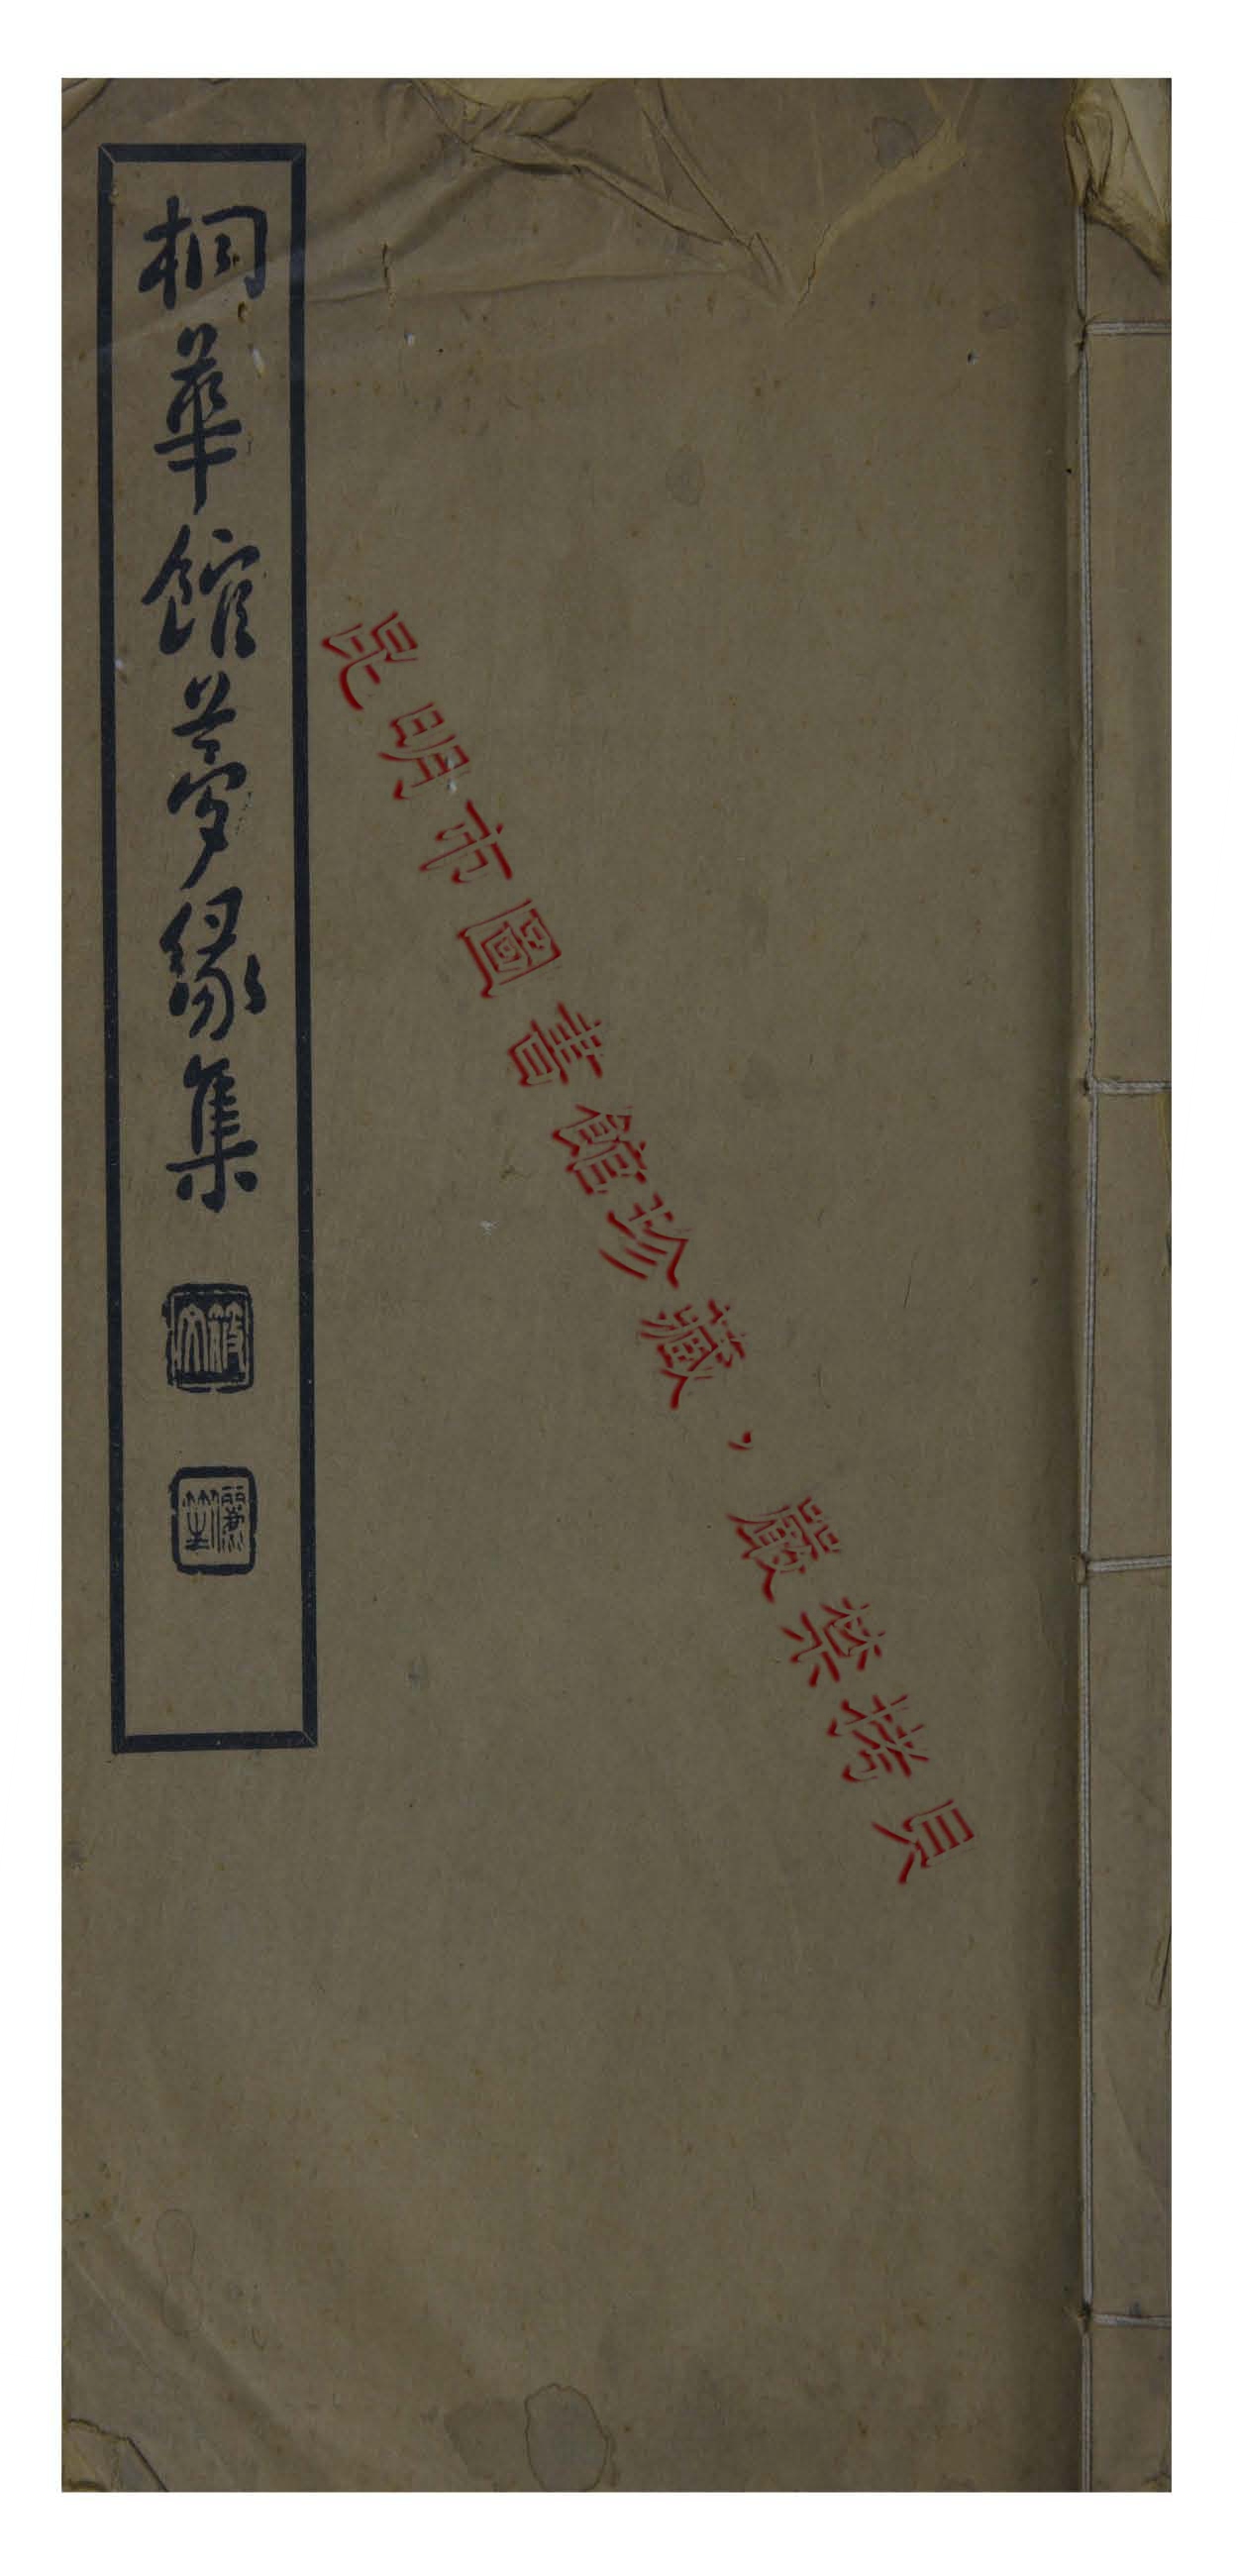 桐華館夢緣集
昆明市圖書館珍藏，嚴禁拷貝